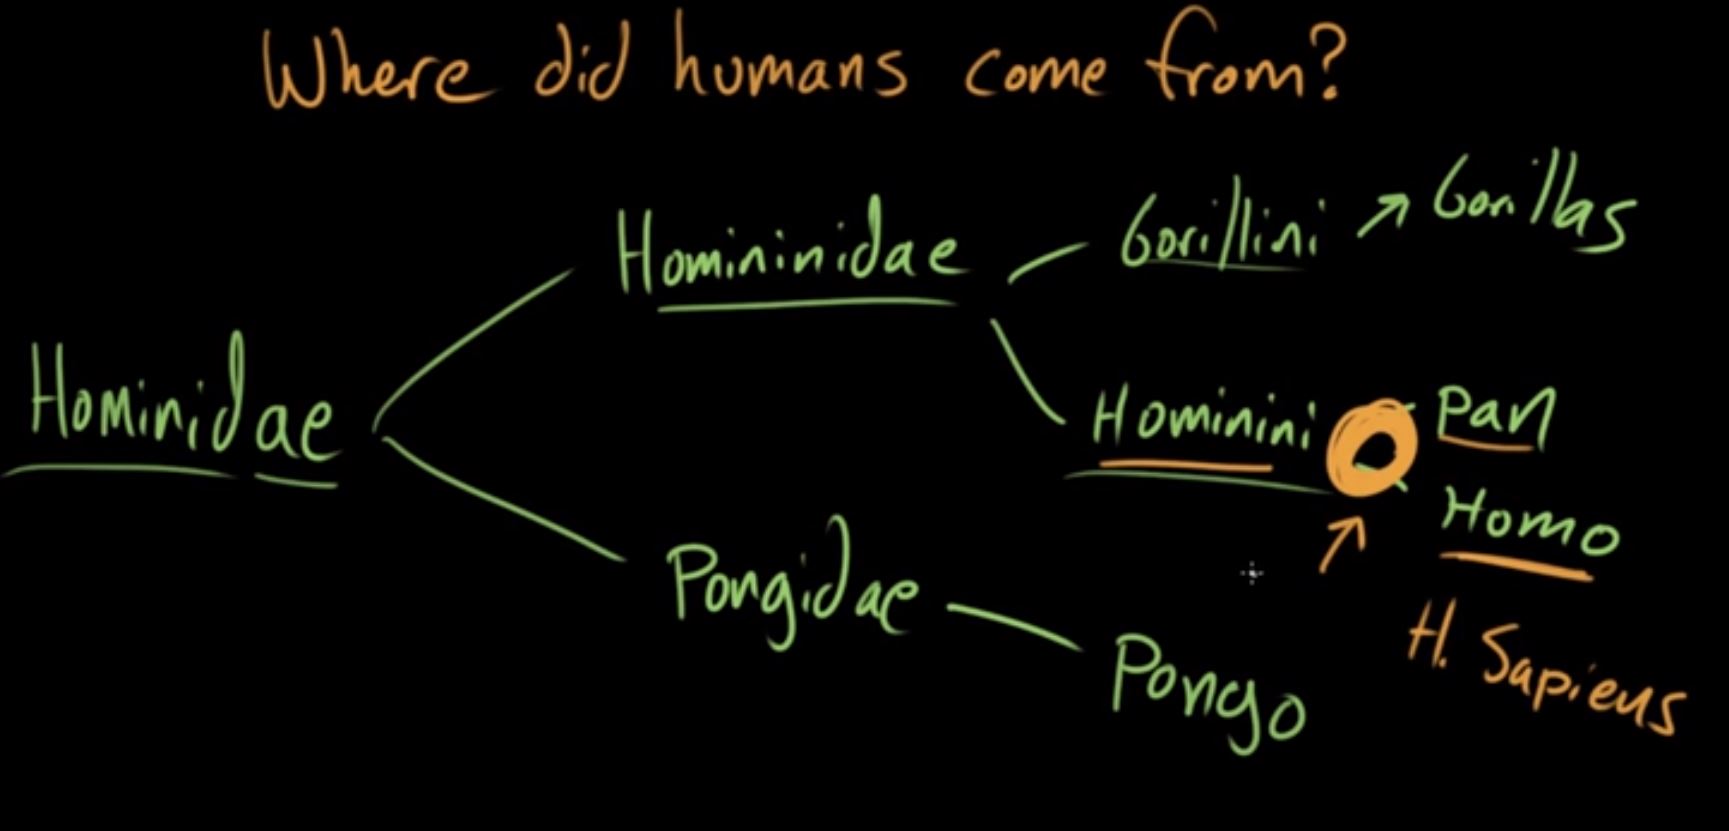 Where did humans come from?
Gorillini
Gorillas
Homininidae
Hominidae
Hominini
Pan
Homo
Pongidae
H. Sapiens
Pongo